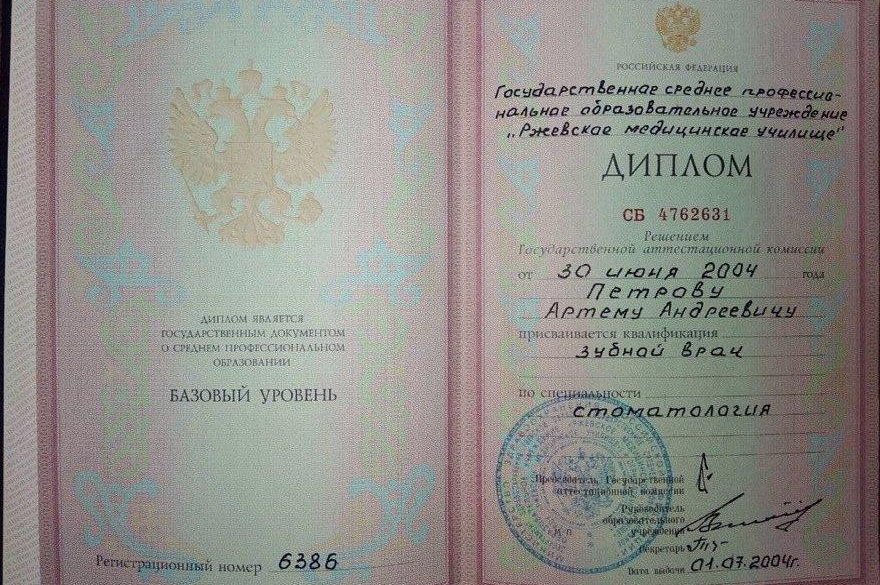 ДИПЛОМ ЯВЛЯЕТСЯ
ГОСУДАРСТВЕННЫМ ДОКУМЕНТОМ
О СРЕДНЕМ ПРОФЕССИОНАЛЬНОМ
ОБРАЗОВАНИИ
БАЗОВЫЙ УРОВЕНЬ
Регистрационный номер 6386
РОССИЙСКАЯ ФЕДЕРАЦИЯ
Государственное среднее профессио-
нальное образовательное учреждение
„Ржевское медицинское училище"
ДИПЛОМ
СБ 4762631
Решением
Государственной аттестационной комиссии
от 30 июня 2004 года
Петрову
Артему Андреевичу
присваивается квалификация
зубной врач
по специальности
стоматология
Председатель Государственной
аттестационной комиссии
Руководитель
образовательного
учреждения
Секретарь
Дата выдачи 01.07.2004г.